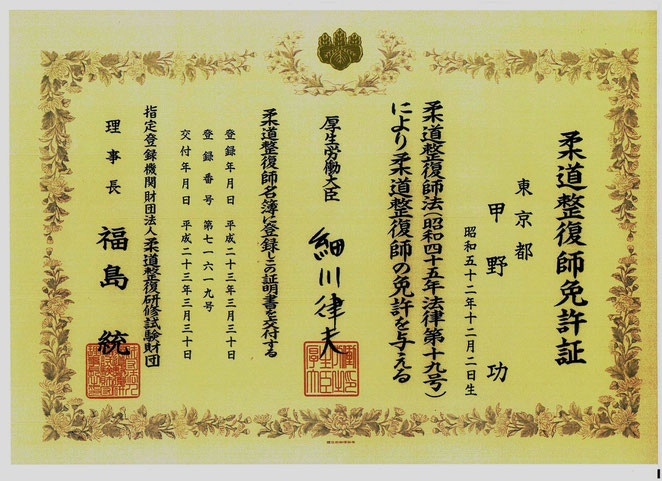 柔道整復師免許証
東京都
甲野 功
昭和五十二年十二月二日生
柔道整復師法(昭和四十五年法律第十九号)
により柔道整復師の免許を与える
厚生労働大臣 細川律夫
柔道整復師名簿に登録しこの証明書を交付する
登録年月日 平成二十三年三月三十日
登録番号 第七一六一九号
交付年月日 平成二十三年三月三十日
指定登録機関財団法人柔道整復研修試験財団
理事長 福島 統